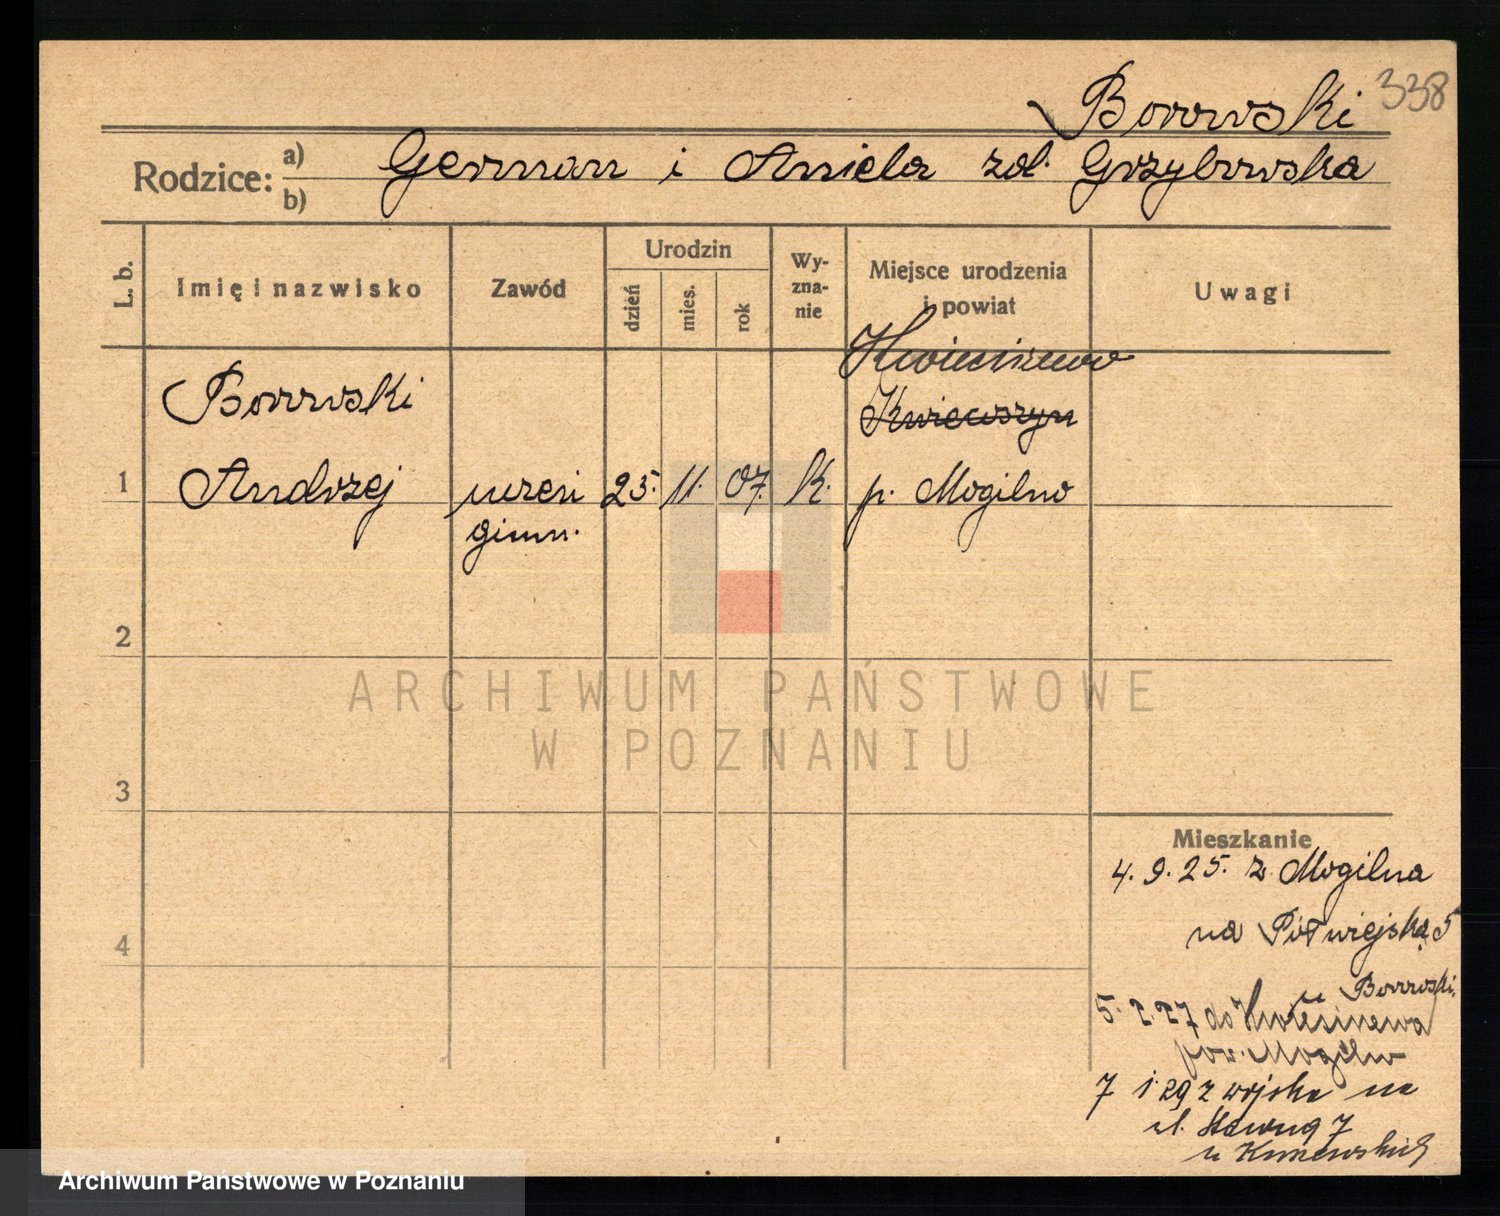 Borowski 338
Rodzice: a) b) German i Aniela zd. Grzybowska
L. b.
Imię i nazwisko
Zawód
Urodzin
dzień
mies.
rok
Wy-
zna-
nie
Miejsce urodzenia
i powiat
Uwagi
Kwieciszewo
Borowski
Kwieciszyn
1 Andrzej uczeń 25. 11. 07. k. p. Mogilno
gimn.
2
3
4
Mieszkanie
4. 9. 25. z Mogilna
na Półwiejską 5
u Borowski.
5. 2. 27 do Kwieciszewa
pow. Mogilno
7 1 29 z wojska na
ul. 7
u
ARCHIWUM PAŃSTWOWE
W POZNANIU
Archiwum Państwowe w Poznaniu